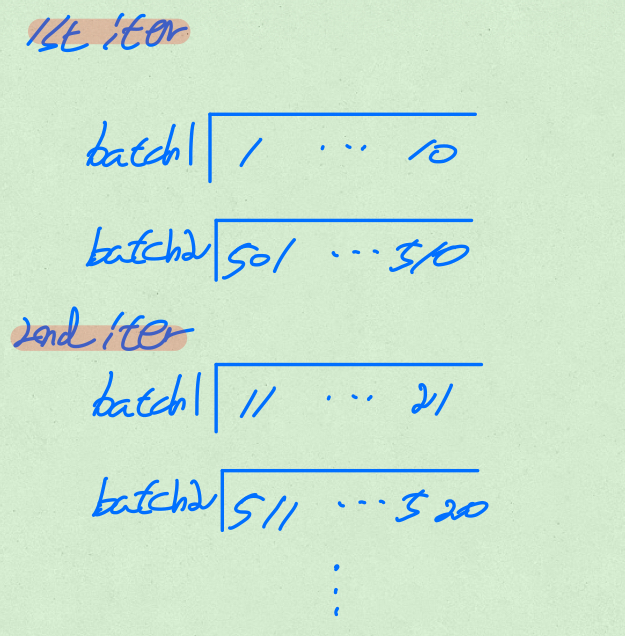 1st iter
batch1 1 ... 10
batch2 501 ... 510
2nd iter
batch1 11 ... 21
batch2 511 ... 520